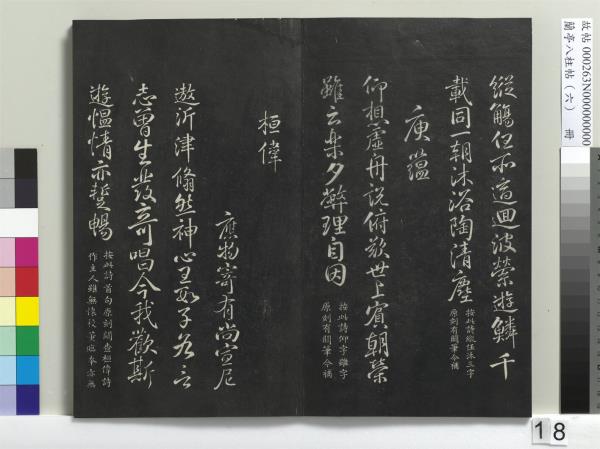 故帖 000263N000000000
蘭亭八柱帖（六） 冊
縱觴任所適迴波縈遊鱗千
載同一朝沐浴陶清塵
按此詩縱任沐三字
原刻有闕筆今補
庾蘊
仰想虛舟說俯歎世上賓朝榮
雖云樂夕斃理自因
按此詩仰字雖字
原刻有闕筆今補
桓偉
應物寄有尚宣尼
遨沂津翛然神心王數子各言
志曾生發奇唱今我歡斯
遊慍情亦蹔暢
按此詩首句原刻闕查桓偉詩
作主人雖無懷後董臨本亦無
18